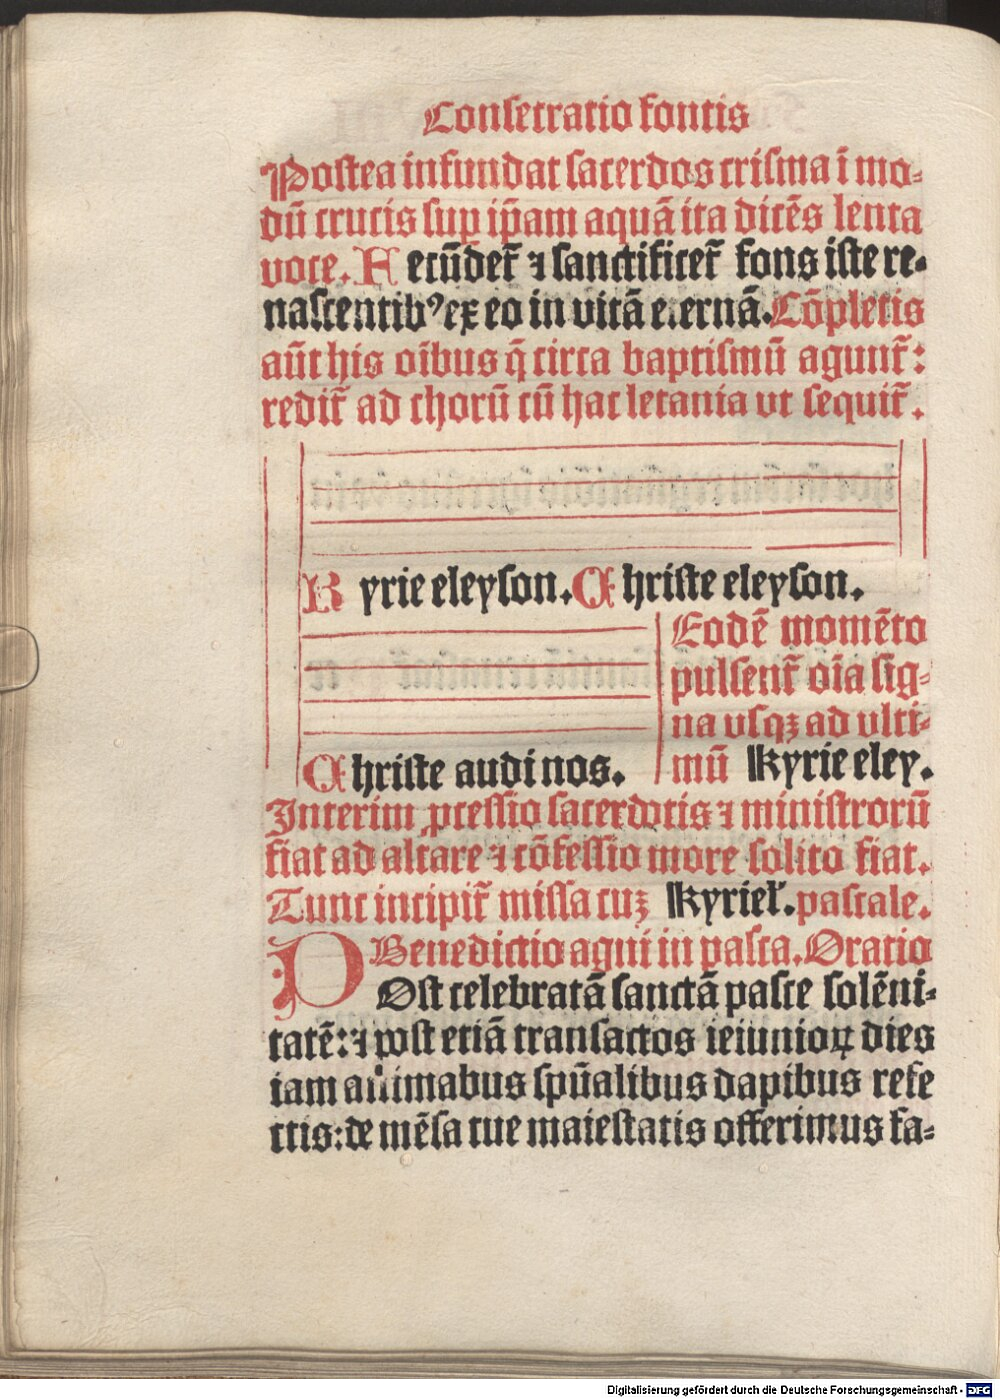 Consecratio fontis
Postea infundat sacerdos crisma ī mo⸗
dū crucis suꝑ ip̄am aquā ita dicēs lenta
voce. Fecūdet᷑ ⁊ sanctificet᷑ fons iste re⸗
nascentibꝰ ex eo in vitā eternā. Cōpletis
aūt his oībus q̄ circa baptismū agunt᷑:
redit᷑ ad chorū cū hac letania vt sequit᷑.
Kyrie eleyson. Christe eleyson.
Christe audi nos.
Eodē momēto
pulsent᷑ oīa sig⸗
na vsqꝫ ad vlti⸗
mū Kyrie eley.
Interim ꝓcessio sacerdotis ⁊ ministrorū
fiat ad altare ⁊ cōfessio more solito fiat.
Tunc incipit᷑ missa cuꝫ Kyriel̓. pascale.
Benedictio agni in pasca. Oratio
POst celebratā sanctā pasce solēni⸗
tatē: ⁊ post etiā transactos ieiunioꝝ dies
iam animabus sp̄ualibus dapibus refe
ctis: de mēsa tue maiestatis offerimus fa⸗
Digitalisierung gefördert durch die Deutsche Forschungsgemeinschaft - DFG